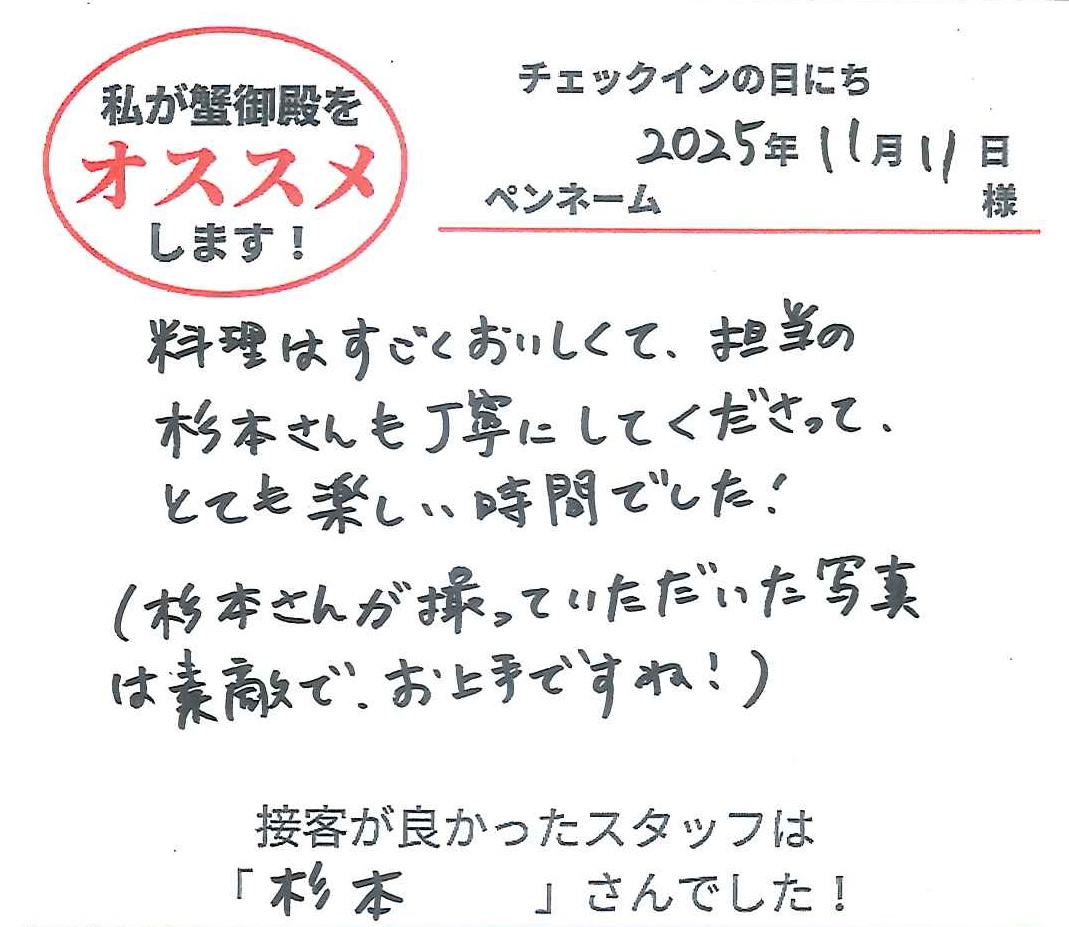 私が蟹御殿を
オススメ
します！
チェックインの日にち
2025年11月11日
ペンネーム 様
料理はすごくおいしくて、担当の
杉本さんも丁寧にしてくださって、
とても楽しい時間でした！
（杉本さんが撮っていただいた写真
は素敵で、お上手ですね！）
接客が良かったスタッフは
「杉本 」さんでした！